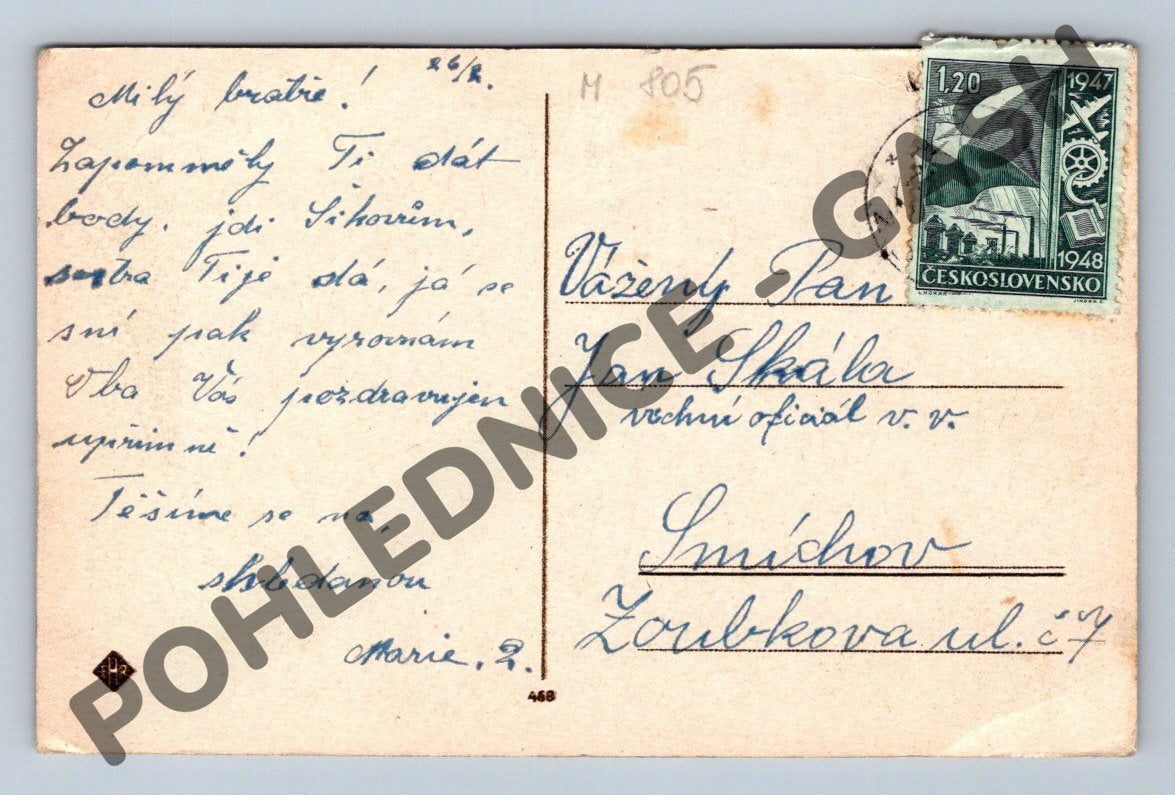 26/2.
Milý bratře!
Zapomměly Ti dát
body. jdi Šikovům,
Ti je dá, já se
sní pak vyrovnám
Oba Vás pozdravujem
upřimně!
Těšíme se na
shledanou
Marie. 2.
468
M 805
1,20
1947
1948
ČESKOSLOVENSKO
Vážený Pan
Jan Skála
vrchní oficiál v. v.
Smíchov
Zoubkova ul. č 7
POHLEDNICE - GASH